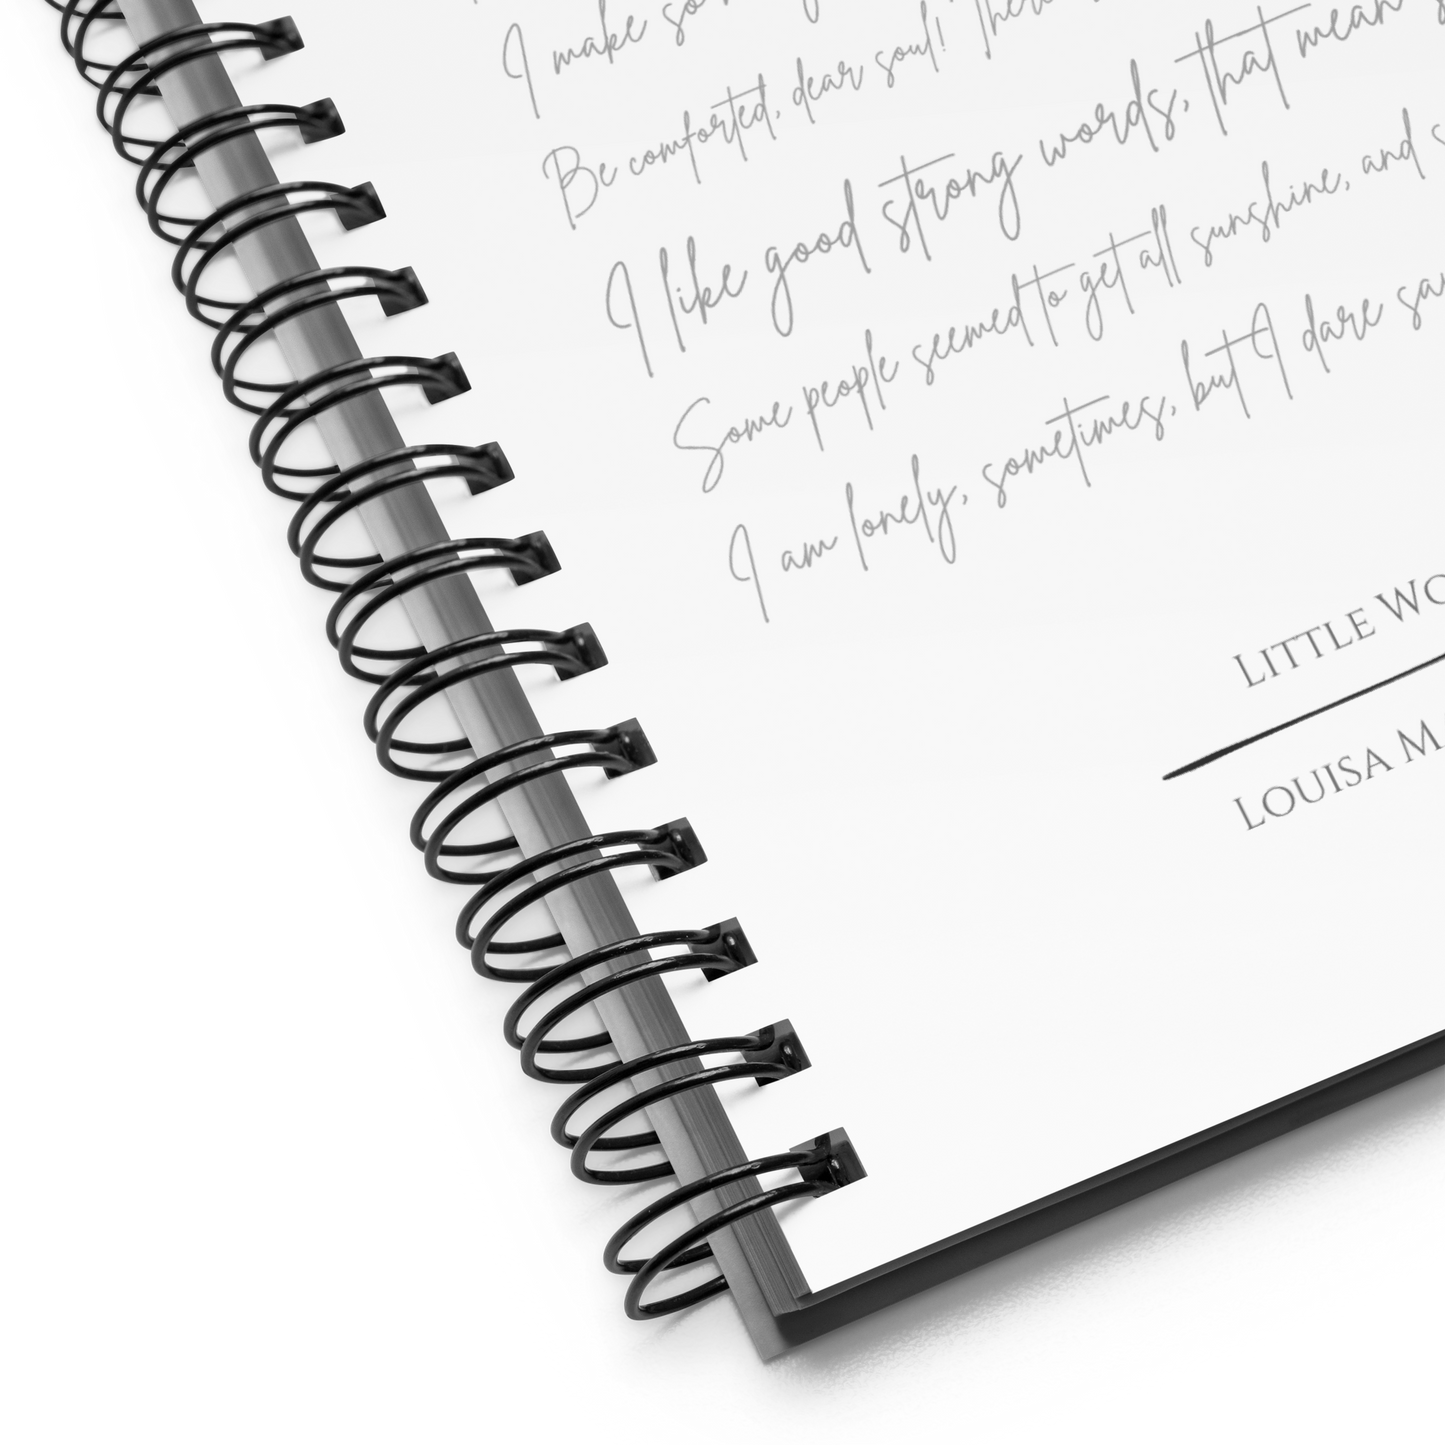 I make so
Be comforted, dear soul! There
I like good strong words, that mean
Some people seemed to get all sunshine, and
I am lonely, sometimes, but I dare sa
LITTLE WO
LOUISA M